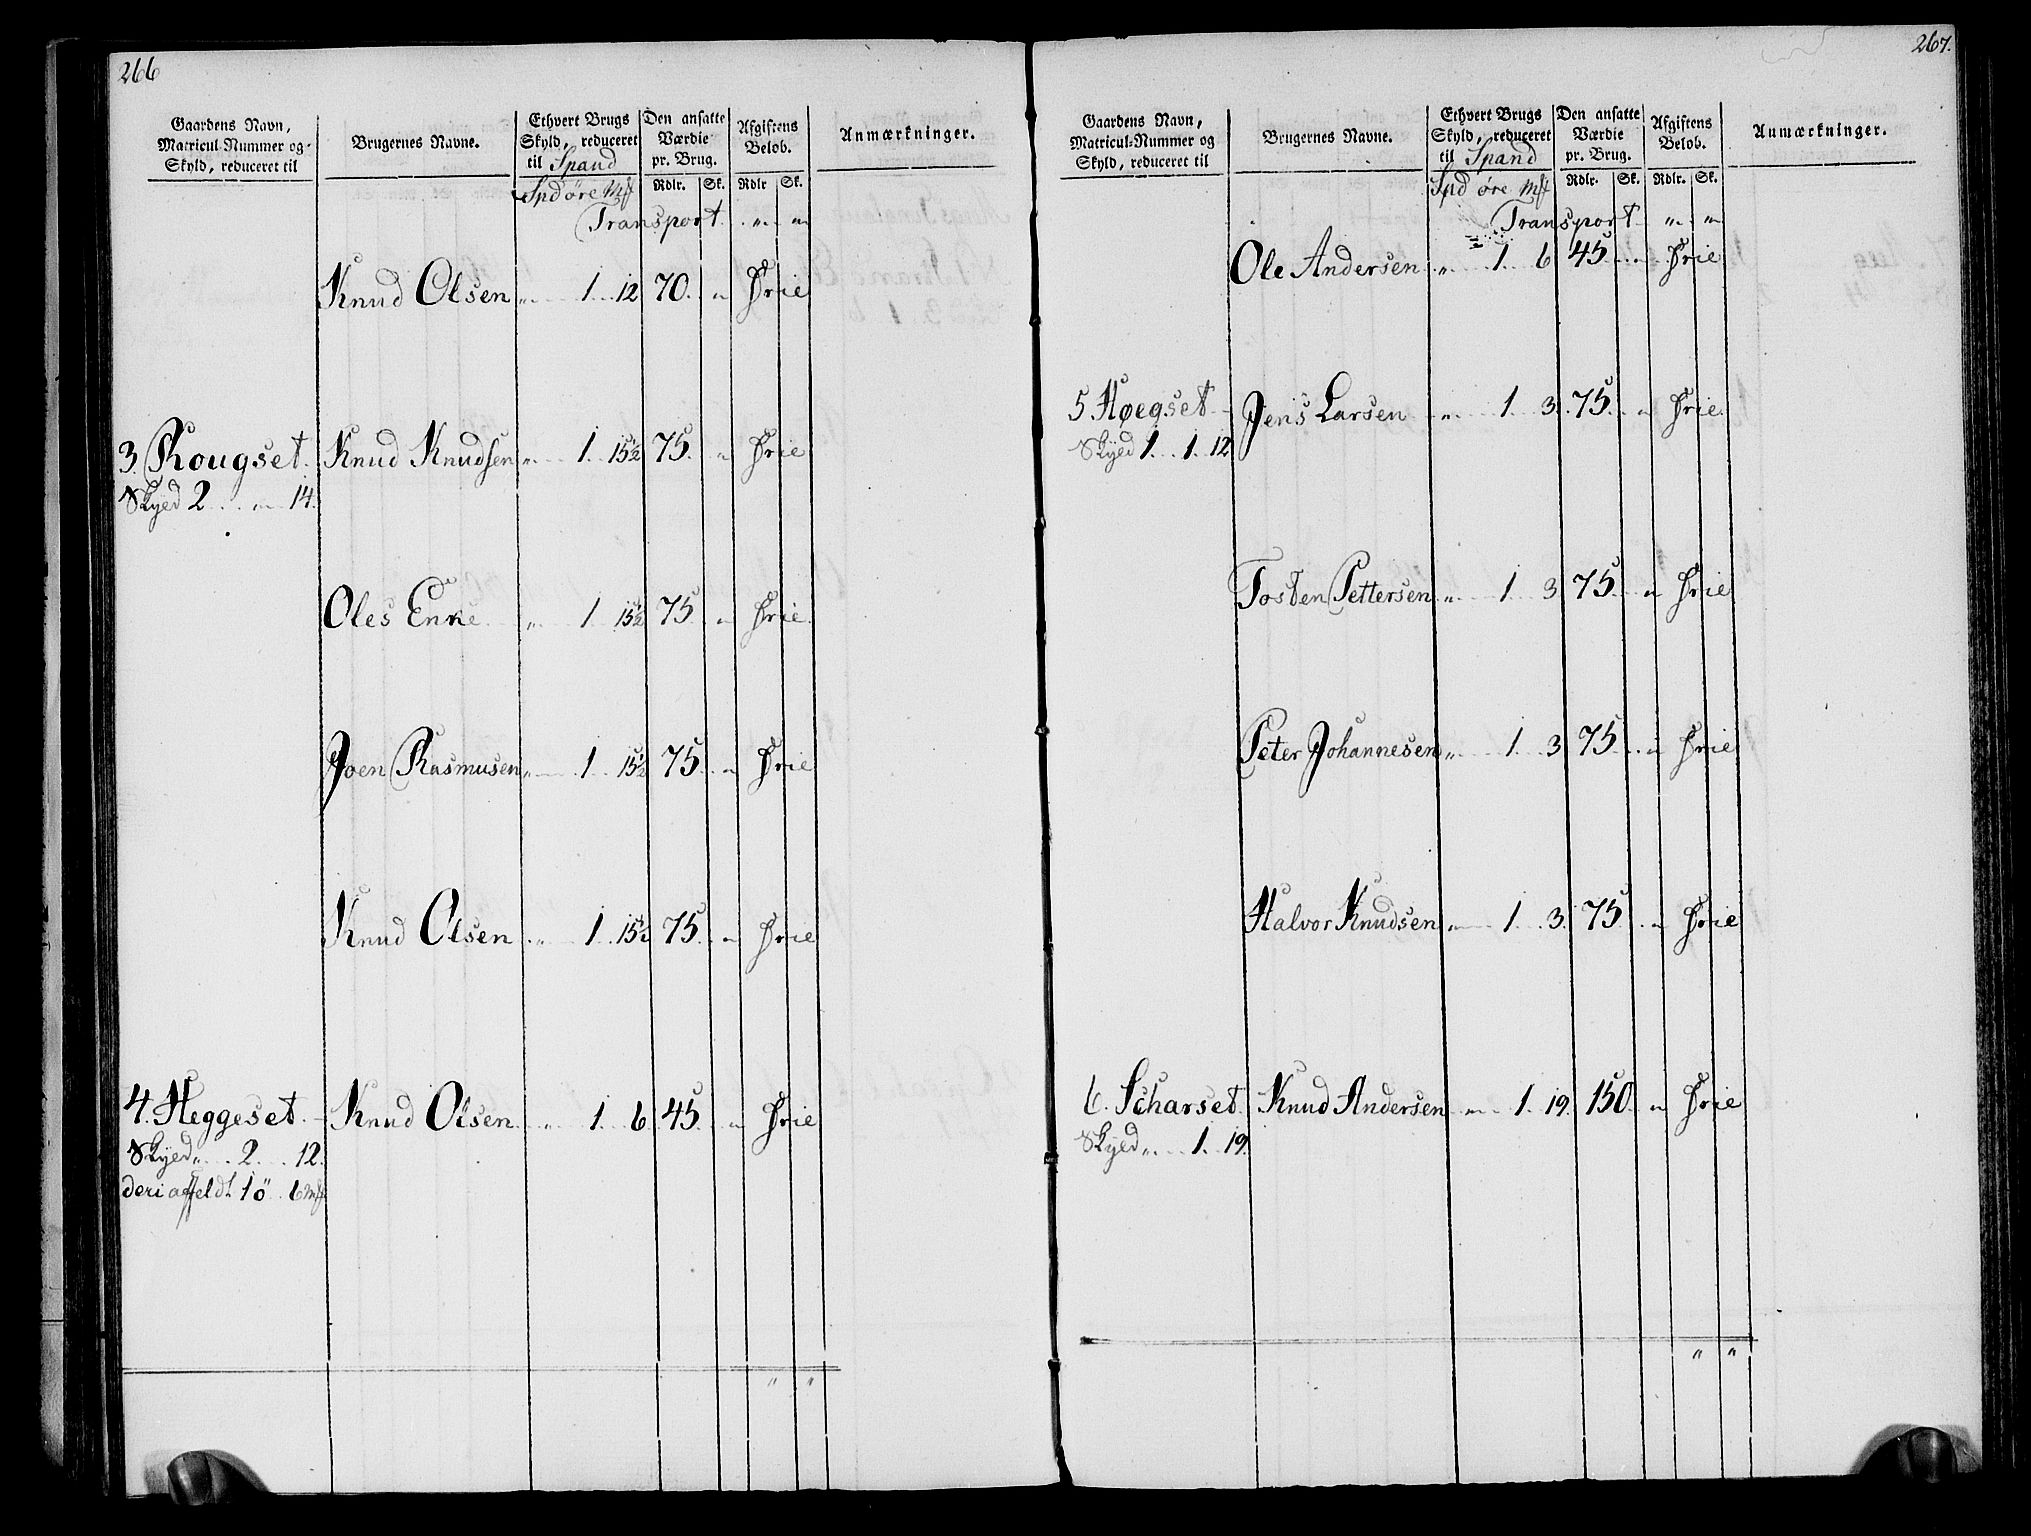 266
Gaardens Navn, Matricul-Nummer og Skyld, reduceret til
Brugernes Navne.
Ethvert Brugs Skyld, reduceret til Spand
Den ansatte Værdie pr. Brug.
Afgiftens Beløb.
Anmærkninger.
Spd øre mk
Rdlr. Sk. Rdlr Sk.
Transport. " "
Knud Olsen " 1 12 70 " Frie
3. Rougset. Knud Knudsen " 1 15½ 75 " Frie
Skyed 2 " 14.
Oles Enke " 1 15½ 75 " Frie
Joen Rasmusen " 1 15½ 75 " Frie
Knud Olsen " 1 15½ 75 " Frie
4. Heggeset. Knud Olsen " 1 6 45 " Frie
Skyed " 2 12.
deri affeldt 1ö 6mk
" "
267.
Gaardens Navn, Matricul-Nummer og Skyld, reduceret til
Brugernes Navne.
Ethvert Brugs Skyld, reduceret til Spand
Den ansatte Værdie pr. Brug.
Afgiftens Beløb.
Anmærkninger.
Spd øre mk
Rdlr. Sk. Rdlr. Sk.
Transport " "
Ole Andersen " 1 6 45 " Frie
5. Høegset Jens Larsen " 1 3 75 " Frie
Skyed 1. 1 12
Tosten Pettersen " 1 3 75 " Frie
Peter Johannesen " 1 3 75 " Frie
Halvor Knudsen " 1 3 75 " Frie
6. Scharset. Knud Andersen " 1 19 150 " Frie
Skyed " 1 19.
" "